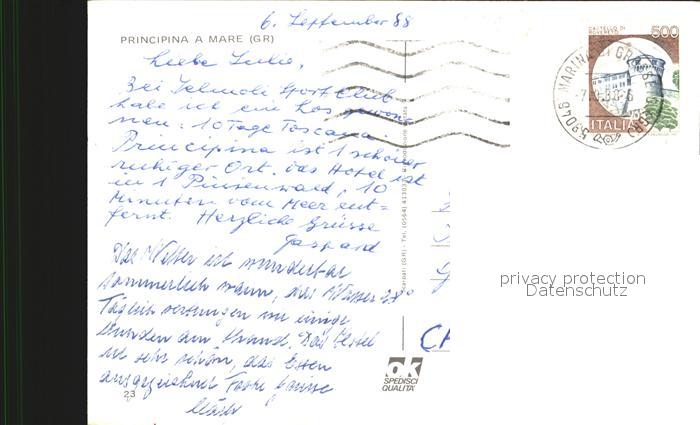 6. September 88
PRINCIPINA A MARE (GR)
Liebe Julie,
Bei Jelmoli Sport Club
habe ich ein Los gewon=
nen: 10 Tage Toscana.
Principina ist 1 schöner
ruhiger Ort. das Hotel ist
in 1 Pinienwald, 10
Minuten vom Meer ent=
fernt. Herzliche Grüsse
Gaspard
Das Wetter ist wunderbar
sommerlich warm, das Wasser 28°
Täglich verbringen wir einige
Stunden am Strand. Das Hotel
ist sehr schön, das Essen
ausgezeichnet
23
CH
ok
SPEDISCI
QUALITA'
CASTELLO DI
ROVERETO
500
ITALIA
58046 MARINA DI GROSSETO
privacy protection
Datenschutz